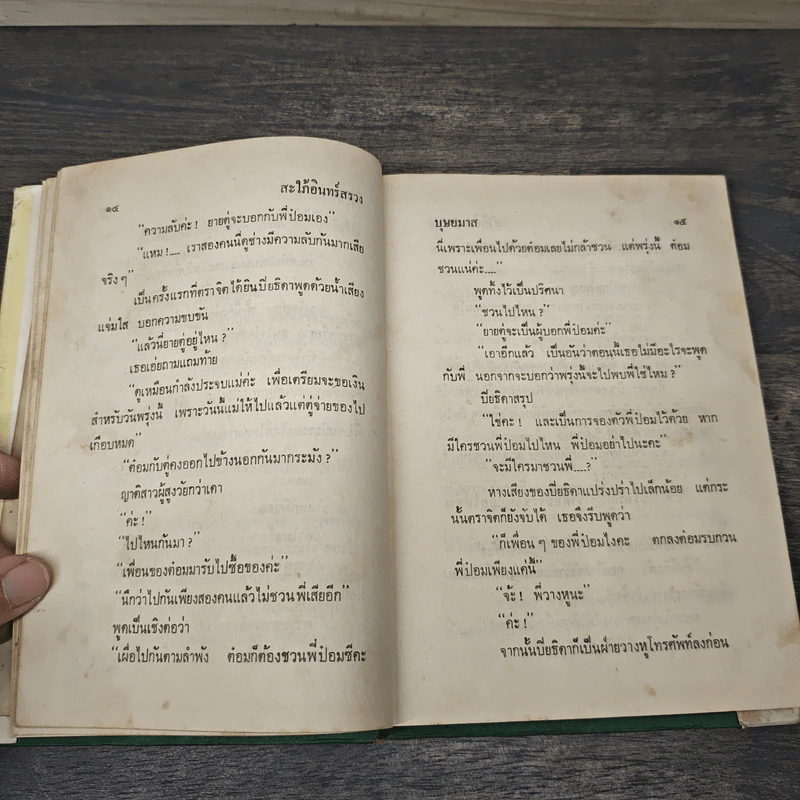 ๑๔
สะใภ้อินทร์สรวง
“ความลับค่ะ ! ยายตู่จะบอกกับพี่ป๋อมเอง”
“แหม !.... เราสองคนนี่ดูช่างมีความลับกันมากเสีย
จริง ๆ”
เป็นครั้งแรกที่ตราจิตได้ยินปิยธิดาพูดด้วยน้ำเสียง
แจ่มใส บอกความขบขัน
“แล้วนี่ยายตู่อยู่ไหน ?”
เธอเอ่ยถามแถมท้าย
“ดูเหมือนกำลังประจบแม่ค่ะ เพื่อเตรียมจะขอเงิน
สำหรับวันพรุ่งนี้ เพราะวันนี้แม่ให้ไปแล้วแต่ตู่จ่ายของไป
เกือบหมด”
“ต๋อมกับตู่คงออกไปข้างนอกกันมากระมัง ?”
ญาติสาวผู้สูงวัยกว่าเดา
“ค่ะ !”
“ไปไหนกันมา ?”
“เพื่อนของต๋อมมารับไปซื้อของค่ะ”
“นึกว่าไปกันเพียงสองคนแล้วไม่ชวนพี่เสียอีก”
พูดเป็นเชิงต่อว่า
“เผื่อไปกันตามลำพัง ต๋อมก็ต้องชวนพี่ป๋อมซีคะ
บุษยมาส
๑๕
นี่เพราะเพื่อนไปด้วยต๋อมเลยไม่กล้าชวน แต่พรุ่งนี้ ต๋อม
ชวนแน่ค่ะ....”
พูดทิ้งไว้เป็นปริศนา
“ชวนไปไหน ?”
“ยายตู่จะเป็นผู้บอกพี่ป๋อมค่ะ”
“เอาอีกแล้ว เป็นอันว่าตอนนี้เธอไม่มีอะไรจะพูด
กับพี่ นอกจากจะบอกว่าพรุ่งนี้จะไปพบพี่ใช่ไหม ?”
ปิยธิดาสรุป
“ใช่คะ ! และเป็นการจองตัวพี่ป๋อมไว้ด้วย หาก
มีใครชวนพี่ป๋อมไปไหน พี่ป๋อมอย่าไปนะคะ”
“จะมีใครมาชวนพี่....?”
หางเสียงของปิยธิดาแปร่งปร่าไปเล็กน้อย แต่กระ
นั้นตราจิตก็ยังจับได้ เธอจึงรีบพูดว่า
“ก็เพื่อน ๆ ของพี่ป๋อมไงคะ ตกลงต๋อมรบกวน
พี่ป๋อมเพียงแค่นี้”
“จ้ะ ! พี่วางหูนะ”
“ค่ะ !”
จากนั้นปิยธิดาก็เป็นฝ่ายวางหูโทรศัพท์ลงก่อน